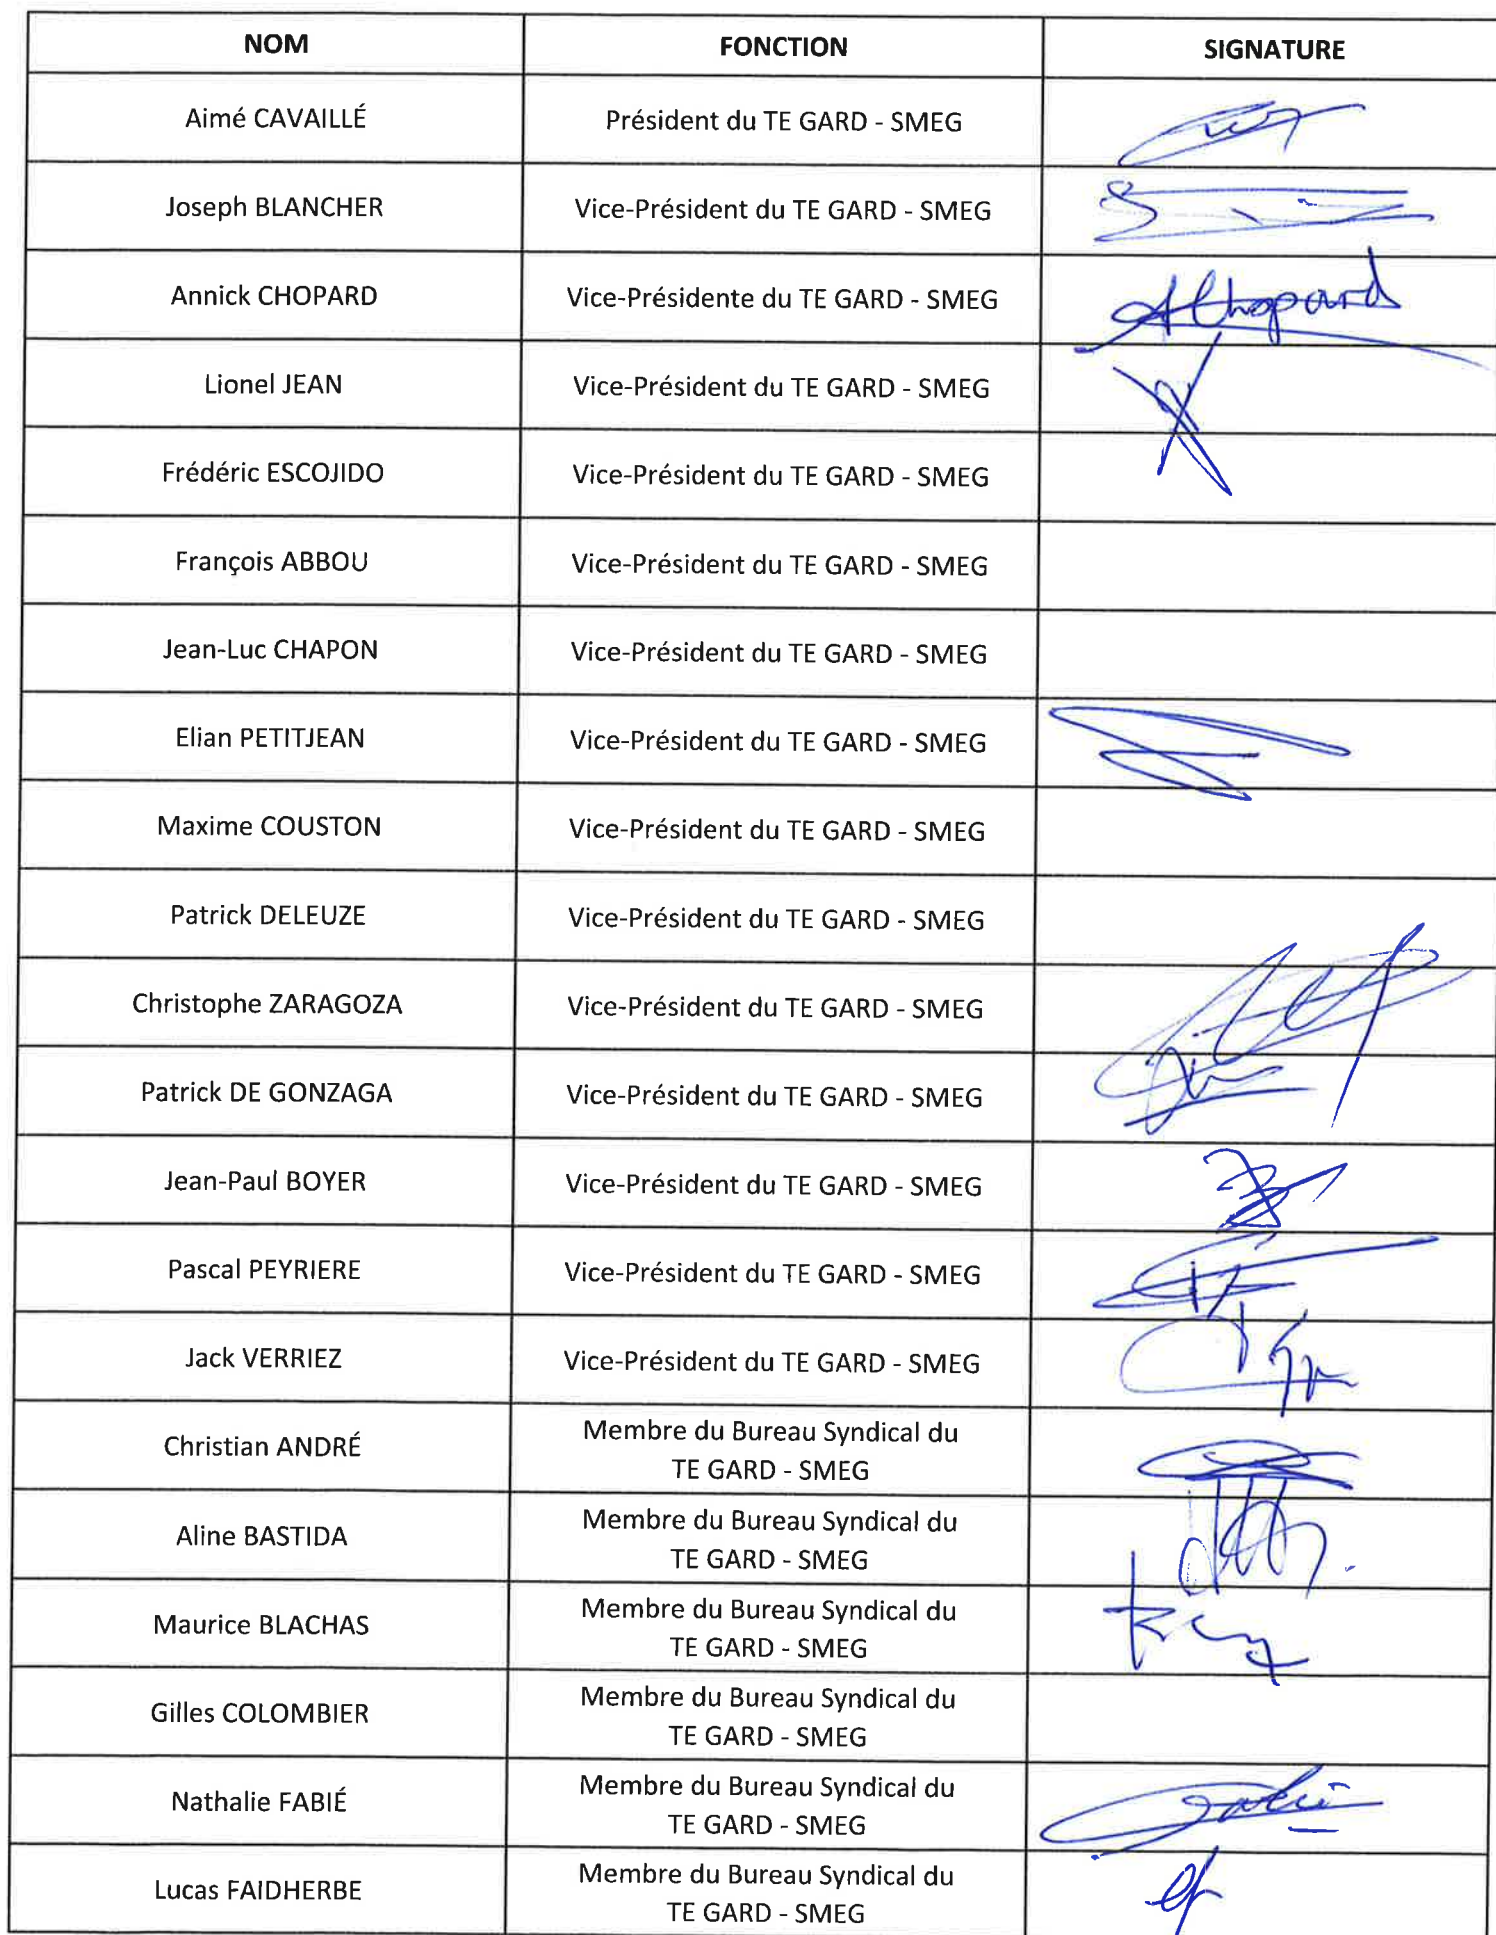 NOM FONCTION SIGNATURE
Aimé CAVAILLÉ Président du TE GARD - SMEG
Joseph BLANCHER Vice-Président du TE GARD - SMEG
Annick CHOPARD Vice-Présidente du TE GARD - SMEG AChopard
Lionel JEAN Vice-Président du TE GARD - SMEG
Frédéric ESCOJIDO Vice-Président du TE GARD - SMEG
François ABBOU Vice-Président du TE GARD - SMEG
Jean-Luc CHAPON Vice-Président du TE GARD - SMEG
Elian PETITJEAN Vice-Président du TE GARD - SMEG
Maxime COUSTON Vice-Président du TE GARD - SMEG
Patrick DELEUZE Vice-Président du TE GARD - SMEG
Christophe ZARAGOZA Vice-Président du TE GARD - SMEG
Patrick DE GONZAGA Vice-Président du TE GARD - SMEG
Jean-Paul BOYER Vice-Président du TE GARD - SMEG
Pascal PEYRIERE Vice-Président du TE GARD - SMEG
Jack VERRIEZ Vice-Président du TE GARD - SMEG
Christian ANDRÉ Membre du Bureau Syndical du
TE GARD - SMEG
Aline BASTIDA Membre du Bureau Syndical du
TE GARD - SMEG
Maurice BLACHAS Membre du Bureau Syndical du
TE GARD - SMEG
Gilles COLOMBIER Membre du Bureau Syndical du
TE GARD - SMEG
Nathalie FABIÉ Membre du Bureau Syndical du
TE GARD - SMEG
Lucas FAIDHERBE Membre du Bureau Syndical du
TE GARD - SMEG